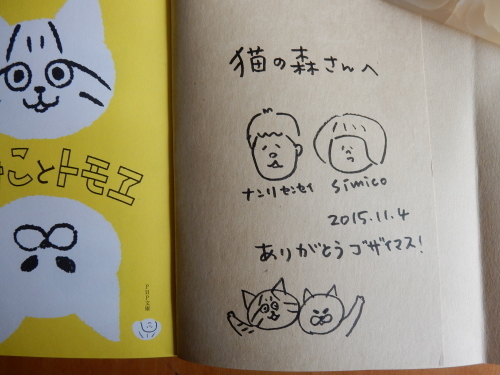 猫の森さんへ
ナンリセンセイ
simico
2015.11.4
ありがとうゴザイマス!
ことトモヱ
PHP文庫